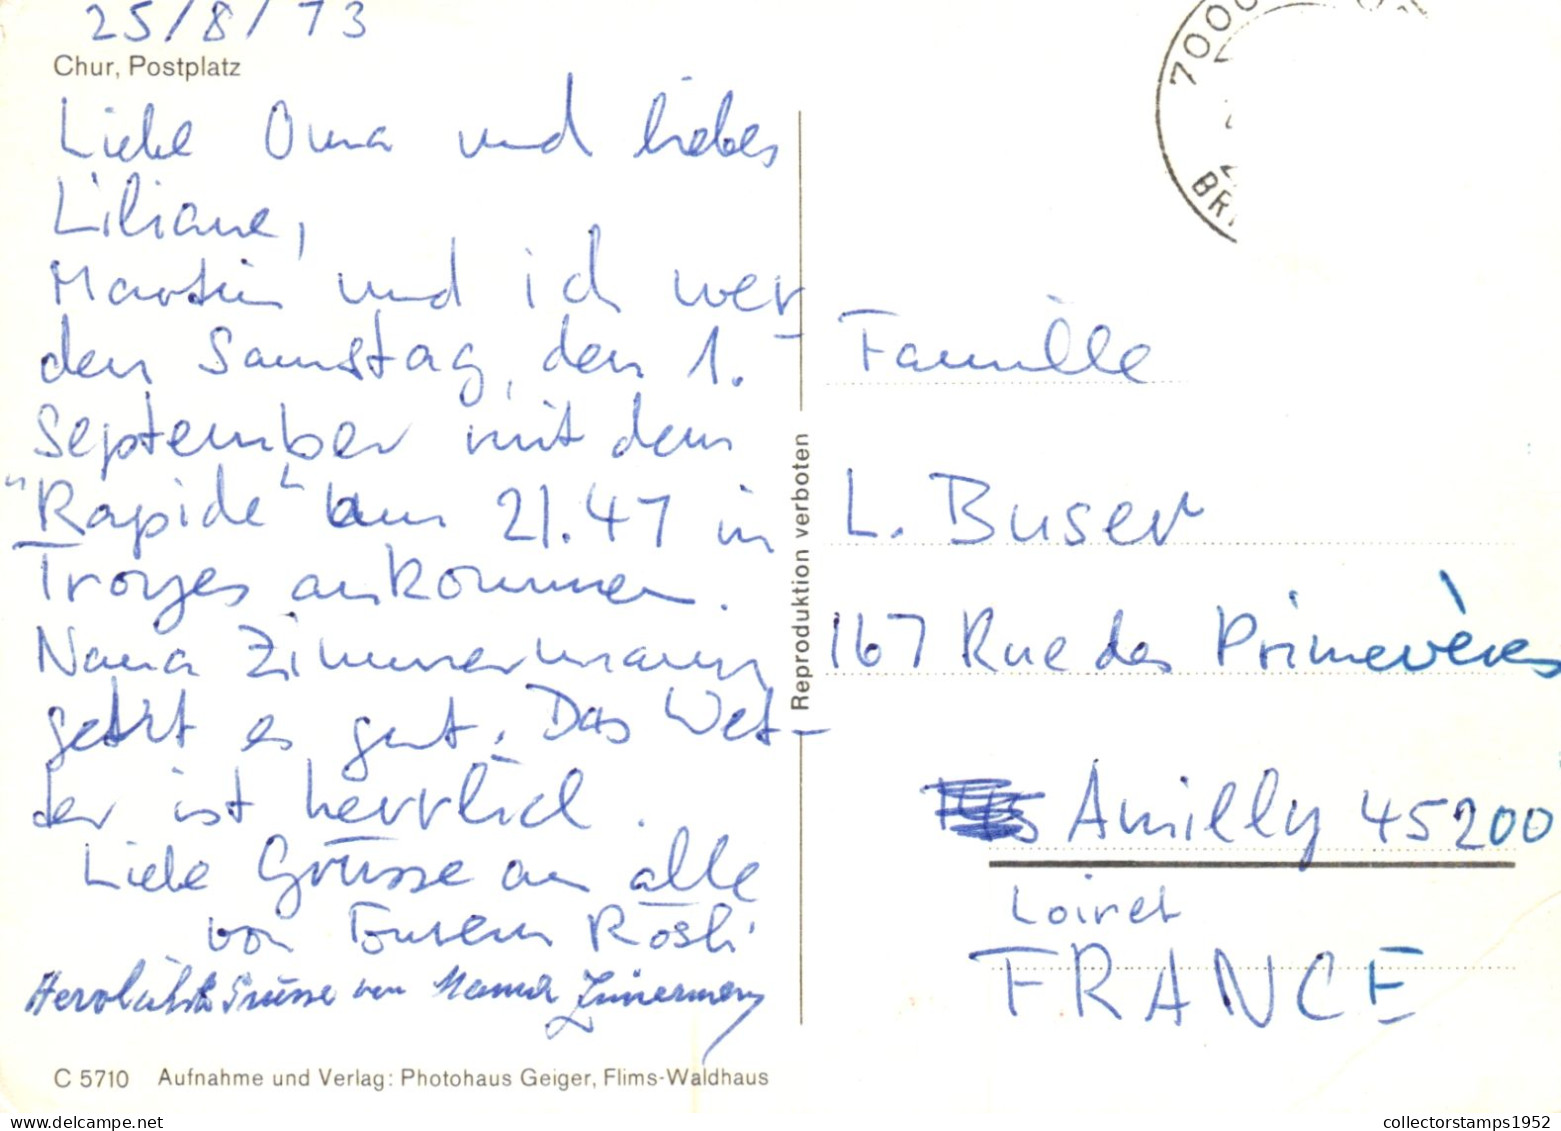 25/8/73
Chur, Postplatz
Liebe Oma und liebes
Liliane,
Martin und ich wer-
den Samstag, den 1.
September mit dem
"Rapide" um 21.47 in
Troyes ankommen.
Nana Zimmermann
geht es gut. Das Wet-
ter ist herrlich.
Liebe Grüsse an alle
von Eurem Rösli
Herzlichste Grüsse von Mama Zimmermann
C 5710 Aufnahme und Verlag: Photohaus Geiger, Flims-Waldhaus
Reproduktion verboten
7000
BRI
Famille
L. Buser
167 Rue des Primevères
Amilly 45200
Loiret
FRANCE
collectorstamps1952